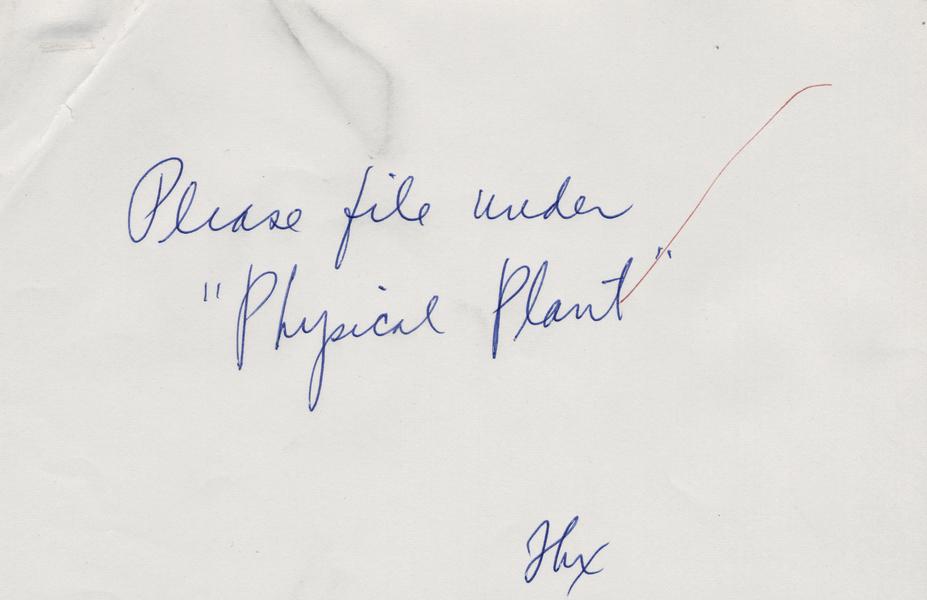 Please file under
"Physical Plant"
Thx